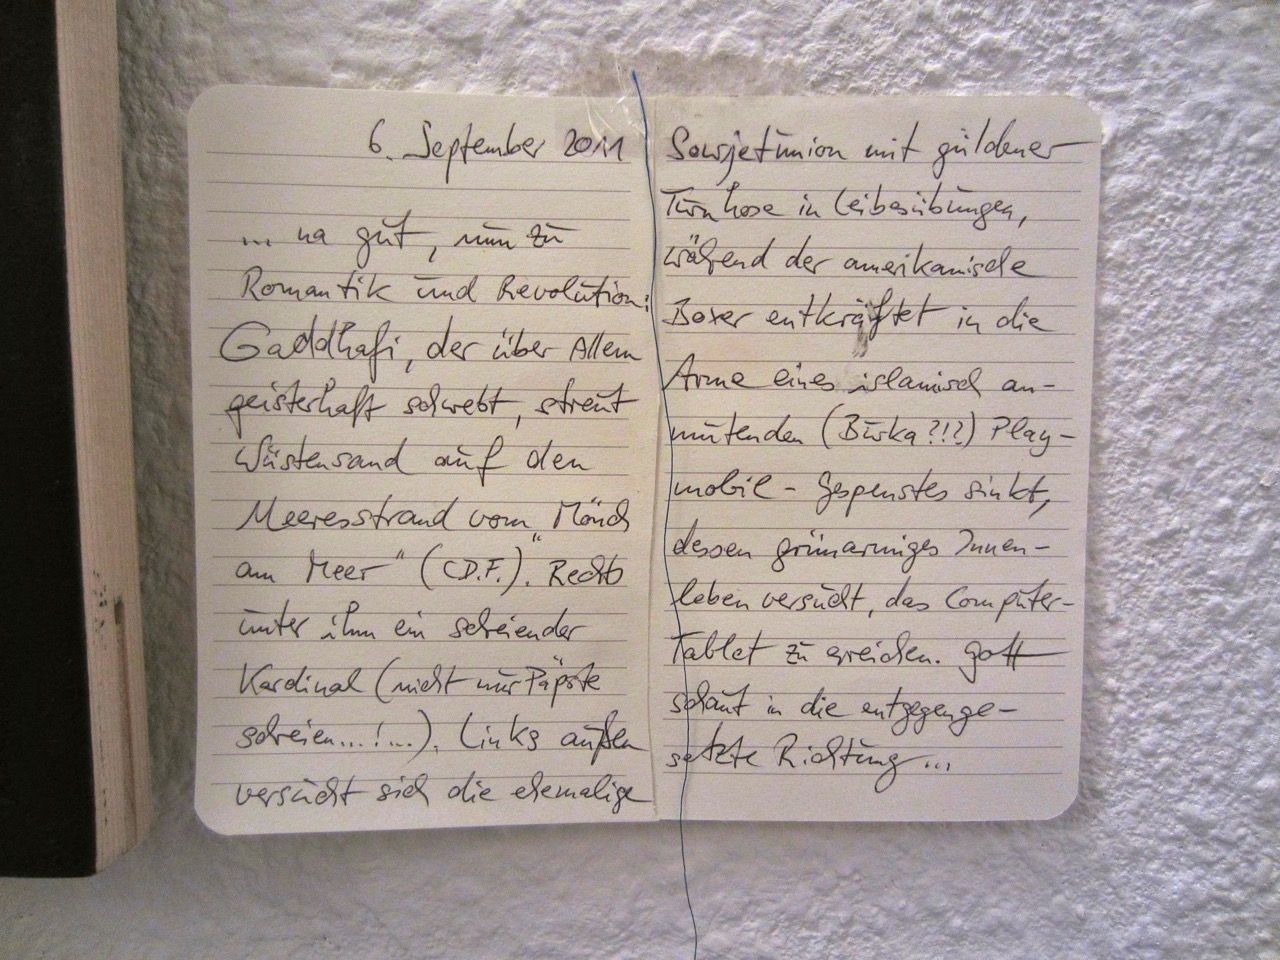 6. September 2011
... na gut, nun zu
Romantik und Revolution:
Gaddhafi, der über Allem
geisterhaft schwebt, streut
Wüstensand auf den
Meeresstrand vom „Mönch
am Meer“ (C.D.F.). Rechts
unter ihm ein schreiender
Kardinal (nicht nur Päpste
schreien...!...). Links außen
versucht sich die ehemalige
Sowjetunion mit güldener
Turnhose in Leibesübungen,
während der amerikanische
Boxer entkräftet in die
Arme eines islamisch an-
mutenden (Burka?!?) Play-
mobil-Gespenstes sinkt,
dessen grünarmiges Innen-
leben versucht, das Computer-
Tablet zu erreichen. Gott
schaut in die entgegenge-
setzte Richtung...